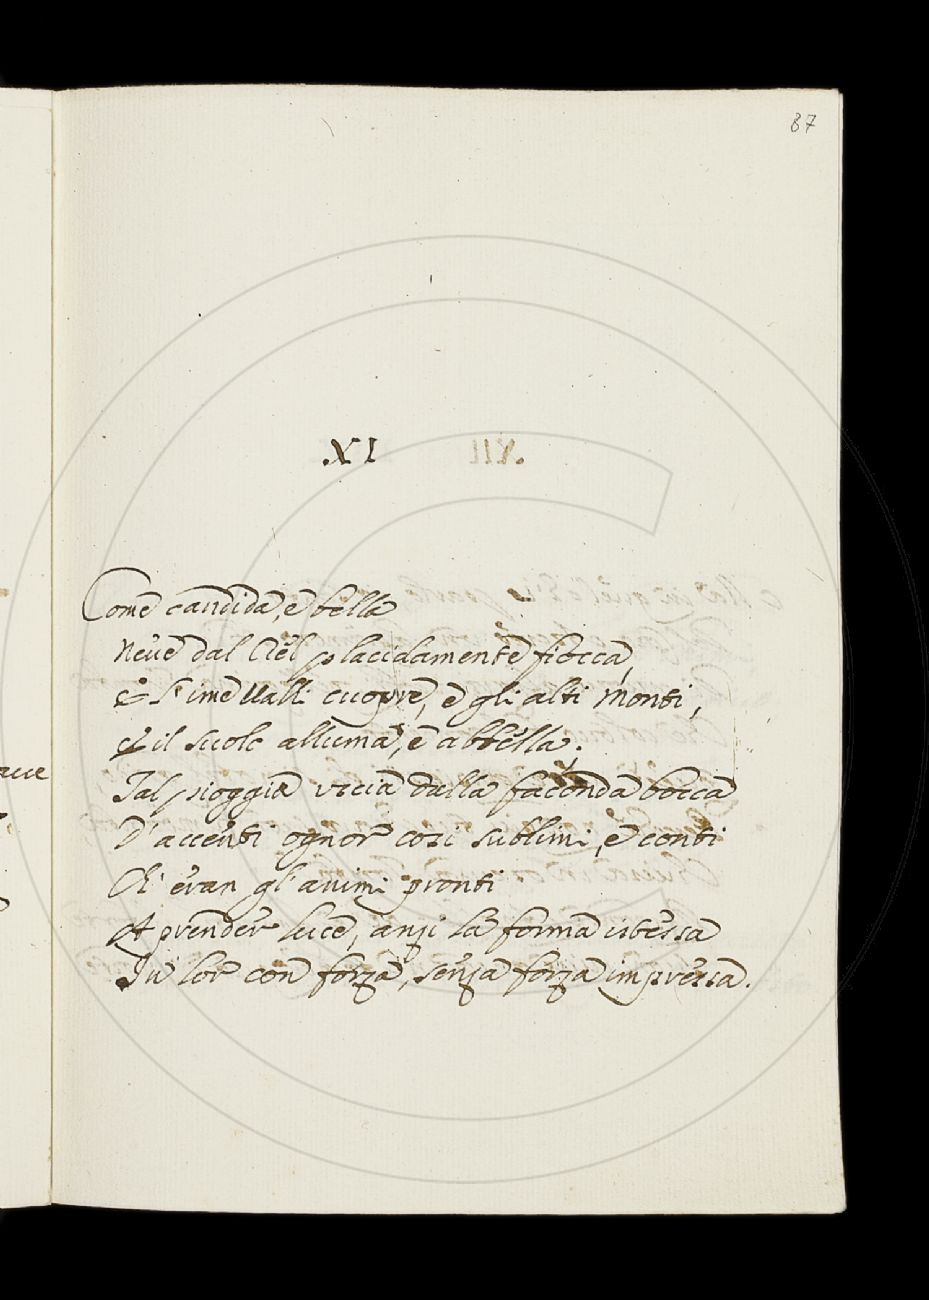 87
.XI
Come candida, e bella
Neue dal Ciel placidamente fiocca,
E l'ime Valli cuopre, e gli alti Monti,
E il suolo alluma, e abbella;
Tal pioggia uscia dalla faconda bocca
D'accenti ognor cosi sublimi, e conti
Ch'eran gl'animi pronti
A prender luce, anzi la forma istessa
In lor con forza, senza forza impressa.